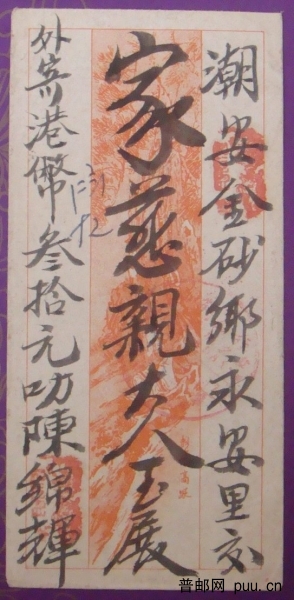 潮安金砂鄉永安里交
家慈親大人玉展
外寄港幣叁拾元叻陳綿輝
普邮网 puu.cn